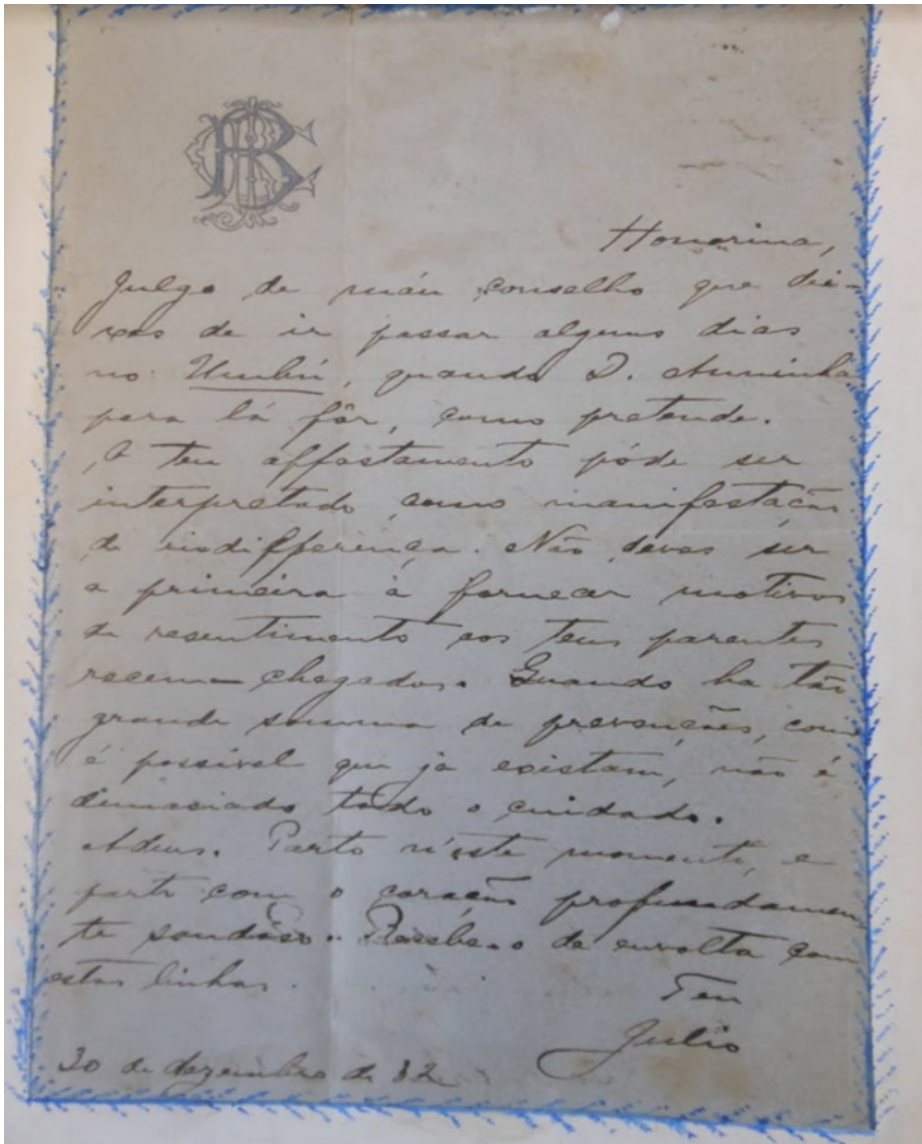 Honorina,
Julgo de máu conselho que dei-
xes de ir passar alguns dias
no Umbú, quando D. Anninha
para lá fôr, como pretende.
O teu affastamento póde ser
interpretado como manifestação
de indifferença. Não deves ser
a primeira a fornecer motivos
de resentimento aos teus parentes
recem-chegados. Quando ha tão
grande somma de prevenções, como
é possivel que ja existam, não é
demasiado todo o cuidado.
Adeus. Parto n'este momento, e
parto com o coração profundamen
te saudoso. Recebe-o de envolta com
estas linhas.
Teu
Julio
30 de dezembro de 82